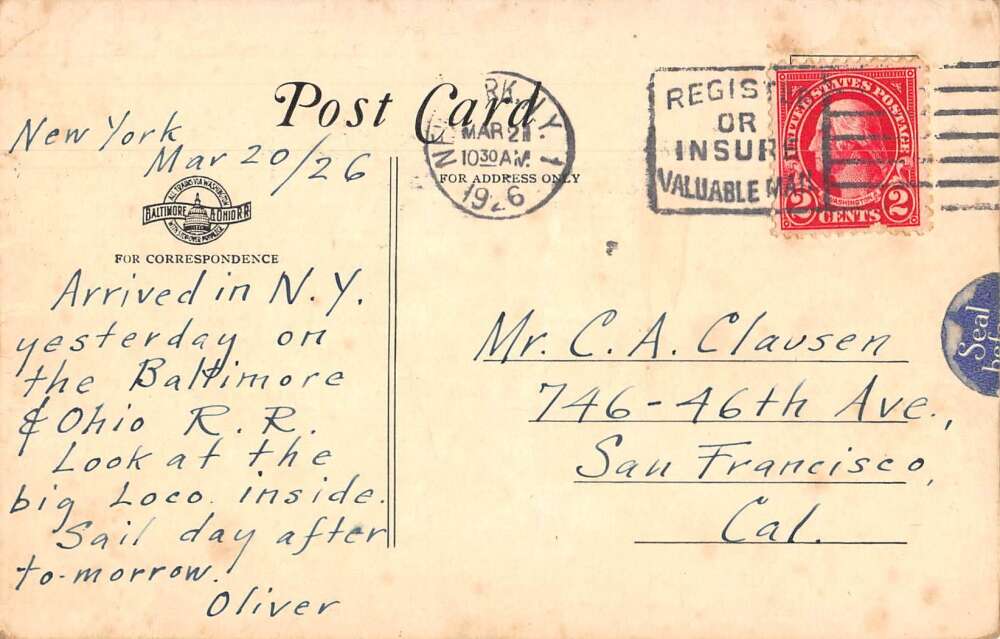 Post Card
New York
Mar 20/26
ALL TRAINS VIA WASHINGTON
BALTIMORE & OHIO R R
WITH STOPOVER PRIVILEGE
FOR CORRESPONDENCE
Arrived in N.Y.
yesterday on
the Baltimore
& Ohio R. R.
Look at the
big Loco. inside.
Sail day after
to-morrow.
Oliver
RK N.Y. 1
MAR 21
10 30 AM
1926
FOR ADDRESS ONLY
REGISTE
OR
INSUR
VALUABLE MAIL
UNITED STATES POSTAGE
WASHINGTON
2 CENTS 2
Mr. C. A. Clausen
746-46th Ave.,
San Francisco,
Cal.
Seal